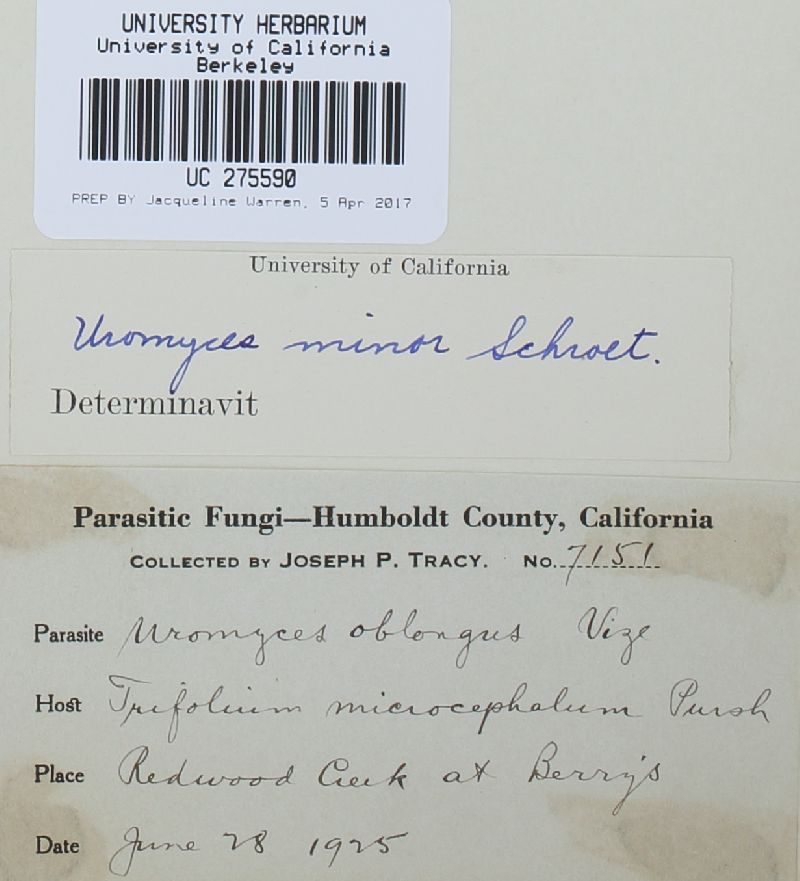 UNIVERSITY HERBARIUM
University of California
Berkeley
UC 275590
PREP BY Jacqueline Warren, 5 Apr 2017
University of California
Uromyces minor Schroet.
Determinavit
Parasitic Fungi—Humboldt County, California
COLLECTED BY JOSEPH P. TRACY. No. 7151
Parasite Uromyces oblongus Vize
Host Trifolium microcephalum Pursh
Place Redwood Creek at Berry's
Date June 28 1925